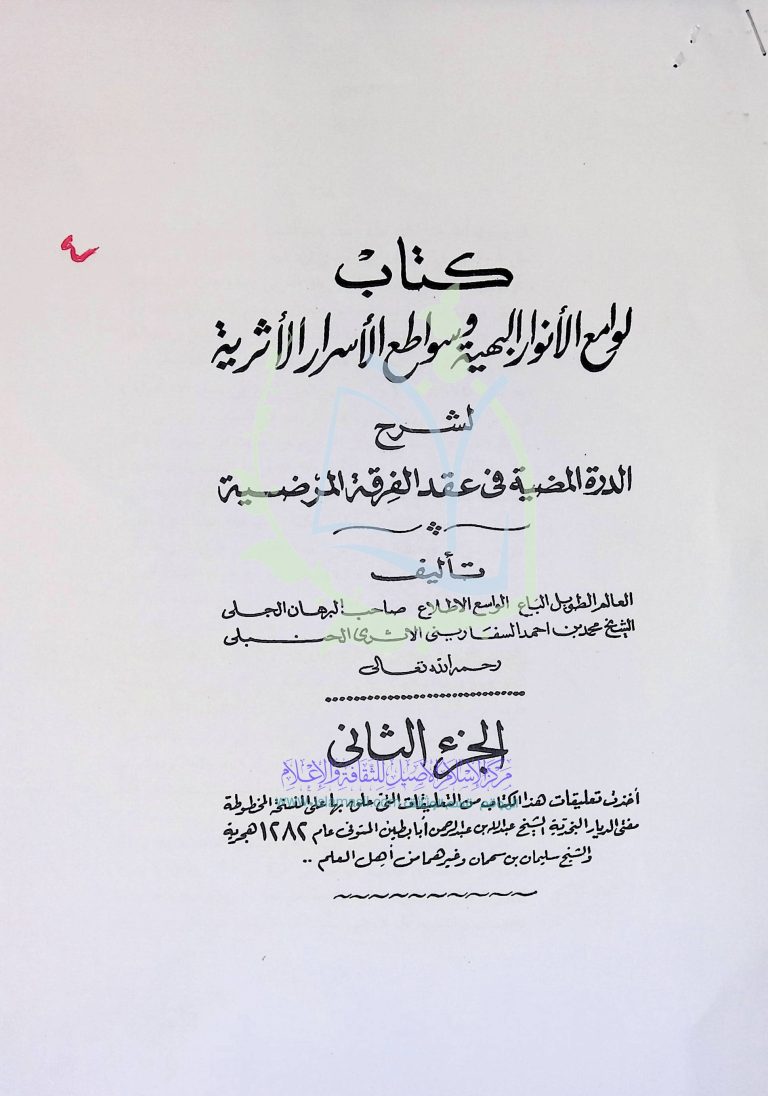 كتاب
لوامع الأنوار البهية وسواطع الأسرار الأثرية
لشرح
الدرة المضية في عقد الفرقة المرضية
تأليف
العالم الطويل الباع الواسع الاطلاع صاحب البرهان الجلي
الشيخ محمد بن احمد السفاريني الاثرى الحنبلى
رحمه الله تعالى
الجزء الثاني
مركز الإسلام الأصيل للثقافة والإعلام
أخذت تعليقات هذا الكتاب من التعليقات التى علق بها على النسخة المخطوطة
مفتى الديار النجدية الشيخ عبدالله بن عبدالرحمن أبا بطين المتوفى عام ١٢٨٢ هجرية
والشيخ سليمان بن سحمان وغيرهما من أهل العلم ..